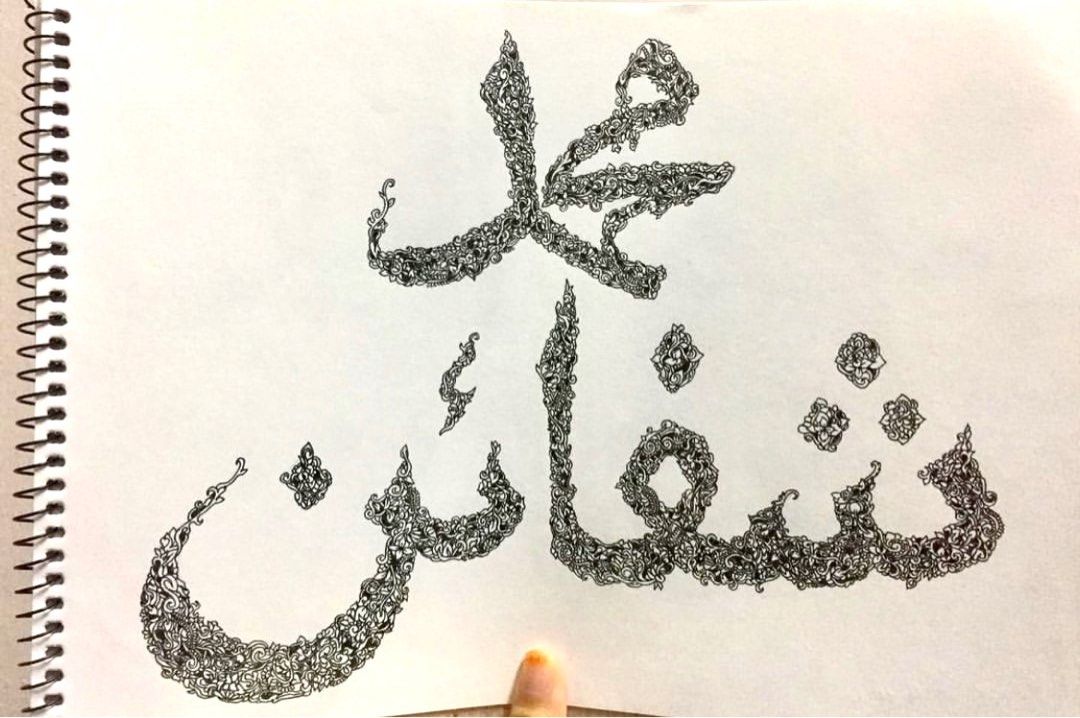 محمد
شفائن